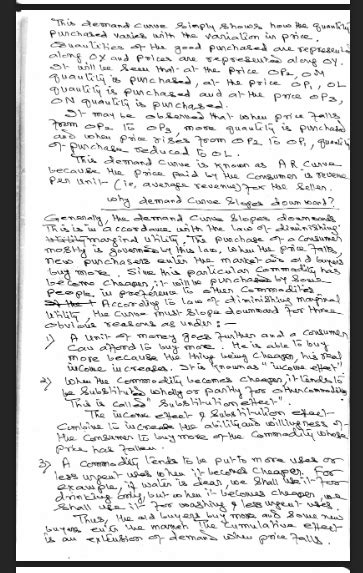 This demand curve simply shows how the quantity
purchased varies with the variation in price.
Quantities of the good purchased are represented
along OX and prices are represented along OY.
It will be seen that at the price OP2, OM
quantity is purchased, at the price OP1, OL
quantity is purchased and at the price OP3,
ON quantity is purchased.
It may be observed that when price falls
from OP2 to OP3, more quantity is purchased
and when price rises from OP2 to OP1, quantity
of purchase reduced to OL.
This demand curve is known as AR curve
because the price paid by the consumer is revenue
per unit (ie, average revenue) for the seller.
Why demand curve slopes downward?
Generally, the demand curve slopes downwards
This is in accordance with the law of diminishing
marginal utility. The purchase of a consumer
mostly is governed by this law, when the price falls,
new purchasers enter the market and old buyers
buy more. Since this particular commodity has
become cheaper, it will be purchased by some
people, in preference to other commodities
According to law of diminishing marginal
utility, the curve must slope downward for three
obvious reasons as under :-
1) A unit of money goes further and a consumer
can afford to buy more. He is able to buy
more because the thing being cheaper, his real
income increases. It is known as "income effect"
2) When the commodity becomes cheaper, it tends to
be substituted wholly or partly for other commodities
This is called "Substitution effect".
The income effect & Substitution effect
combine to increase the ability and willingness of
the consumer to buy more of the commodity whose
price has fallen.
3) A commodity tends to be put to more uses or
less urgent uses when it becomes cheaper. For
example, if water is dear, we shall use it for
drinking only, but when it becomes cheaper, we
shall use it for washing & less urgent uses.
Thus, the old buyers buy more and some new
buyers enter the market. The cumulative effect
is an extension of demand when price falls.